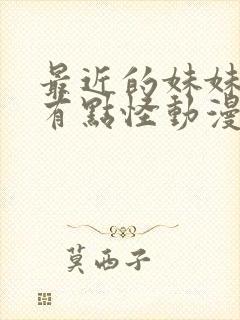 最近的妹妹
有點怪動漫
莫西子